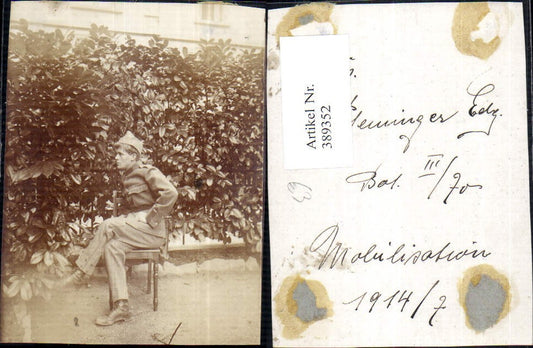 Artikel Nr.
389352
Edg.
Bat. III/70
Mobilisation
1914/7